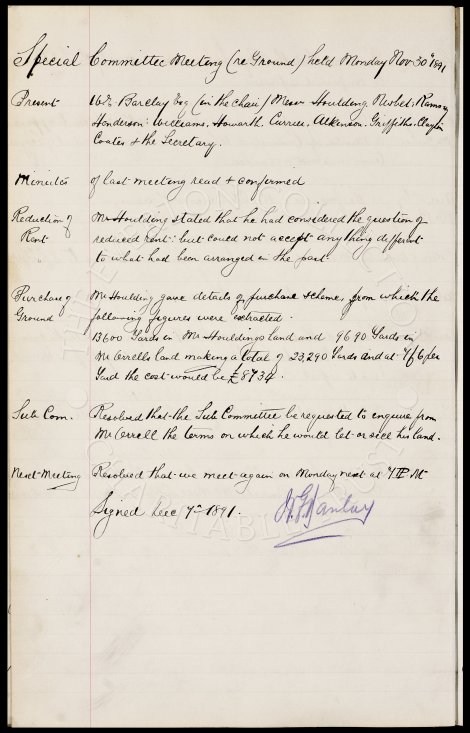 Special Committee Meeting (re Ground) held Monday Nov 30th 1891
Present Barclay Esq (in the chair) Messrs Houlding, Nisbet, Ramsay
Henderson: Williams, Howarth, Currier, Atkinson, Griffiths, Clayton
Coates & the Secretary.
Minutes of last meeting read & confirmed
Reduction of Mr Houlding stated that he had considered the question of
Rent reduced rent: but could not accept anything different
to what had been arranged in the past
Purchase of Mr Houlding gave details of purchase scheme, from which the
Ground following figures were extracted.
13600 Yards in Mr Houldings land and 9690 Yards in
Mr Orrells land making a total of 23,290 Yards and at 7/6 per
Yard the cost would be £8734.
Sub Com. Resolved that the Sub Committee be requested to enquire from
Mr Orrell the terms on which he would let or sell his land.
Next Meeting Resolved that we meet again on Monday next at
Signed Dec 7th 1891.